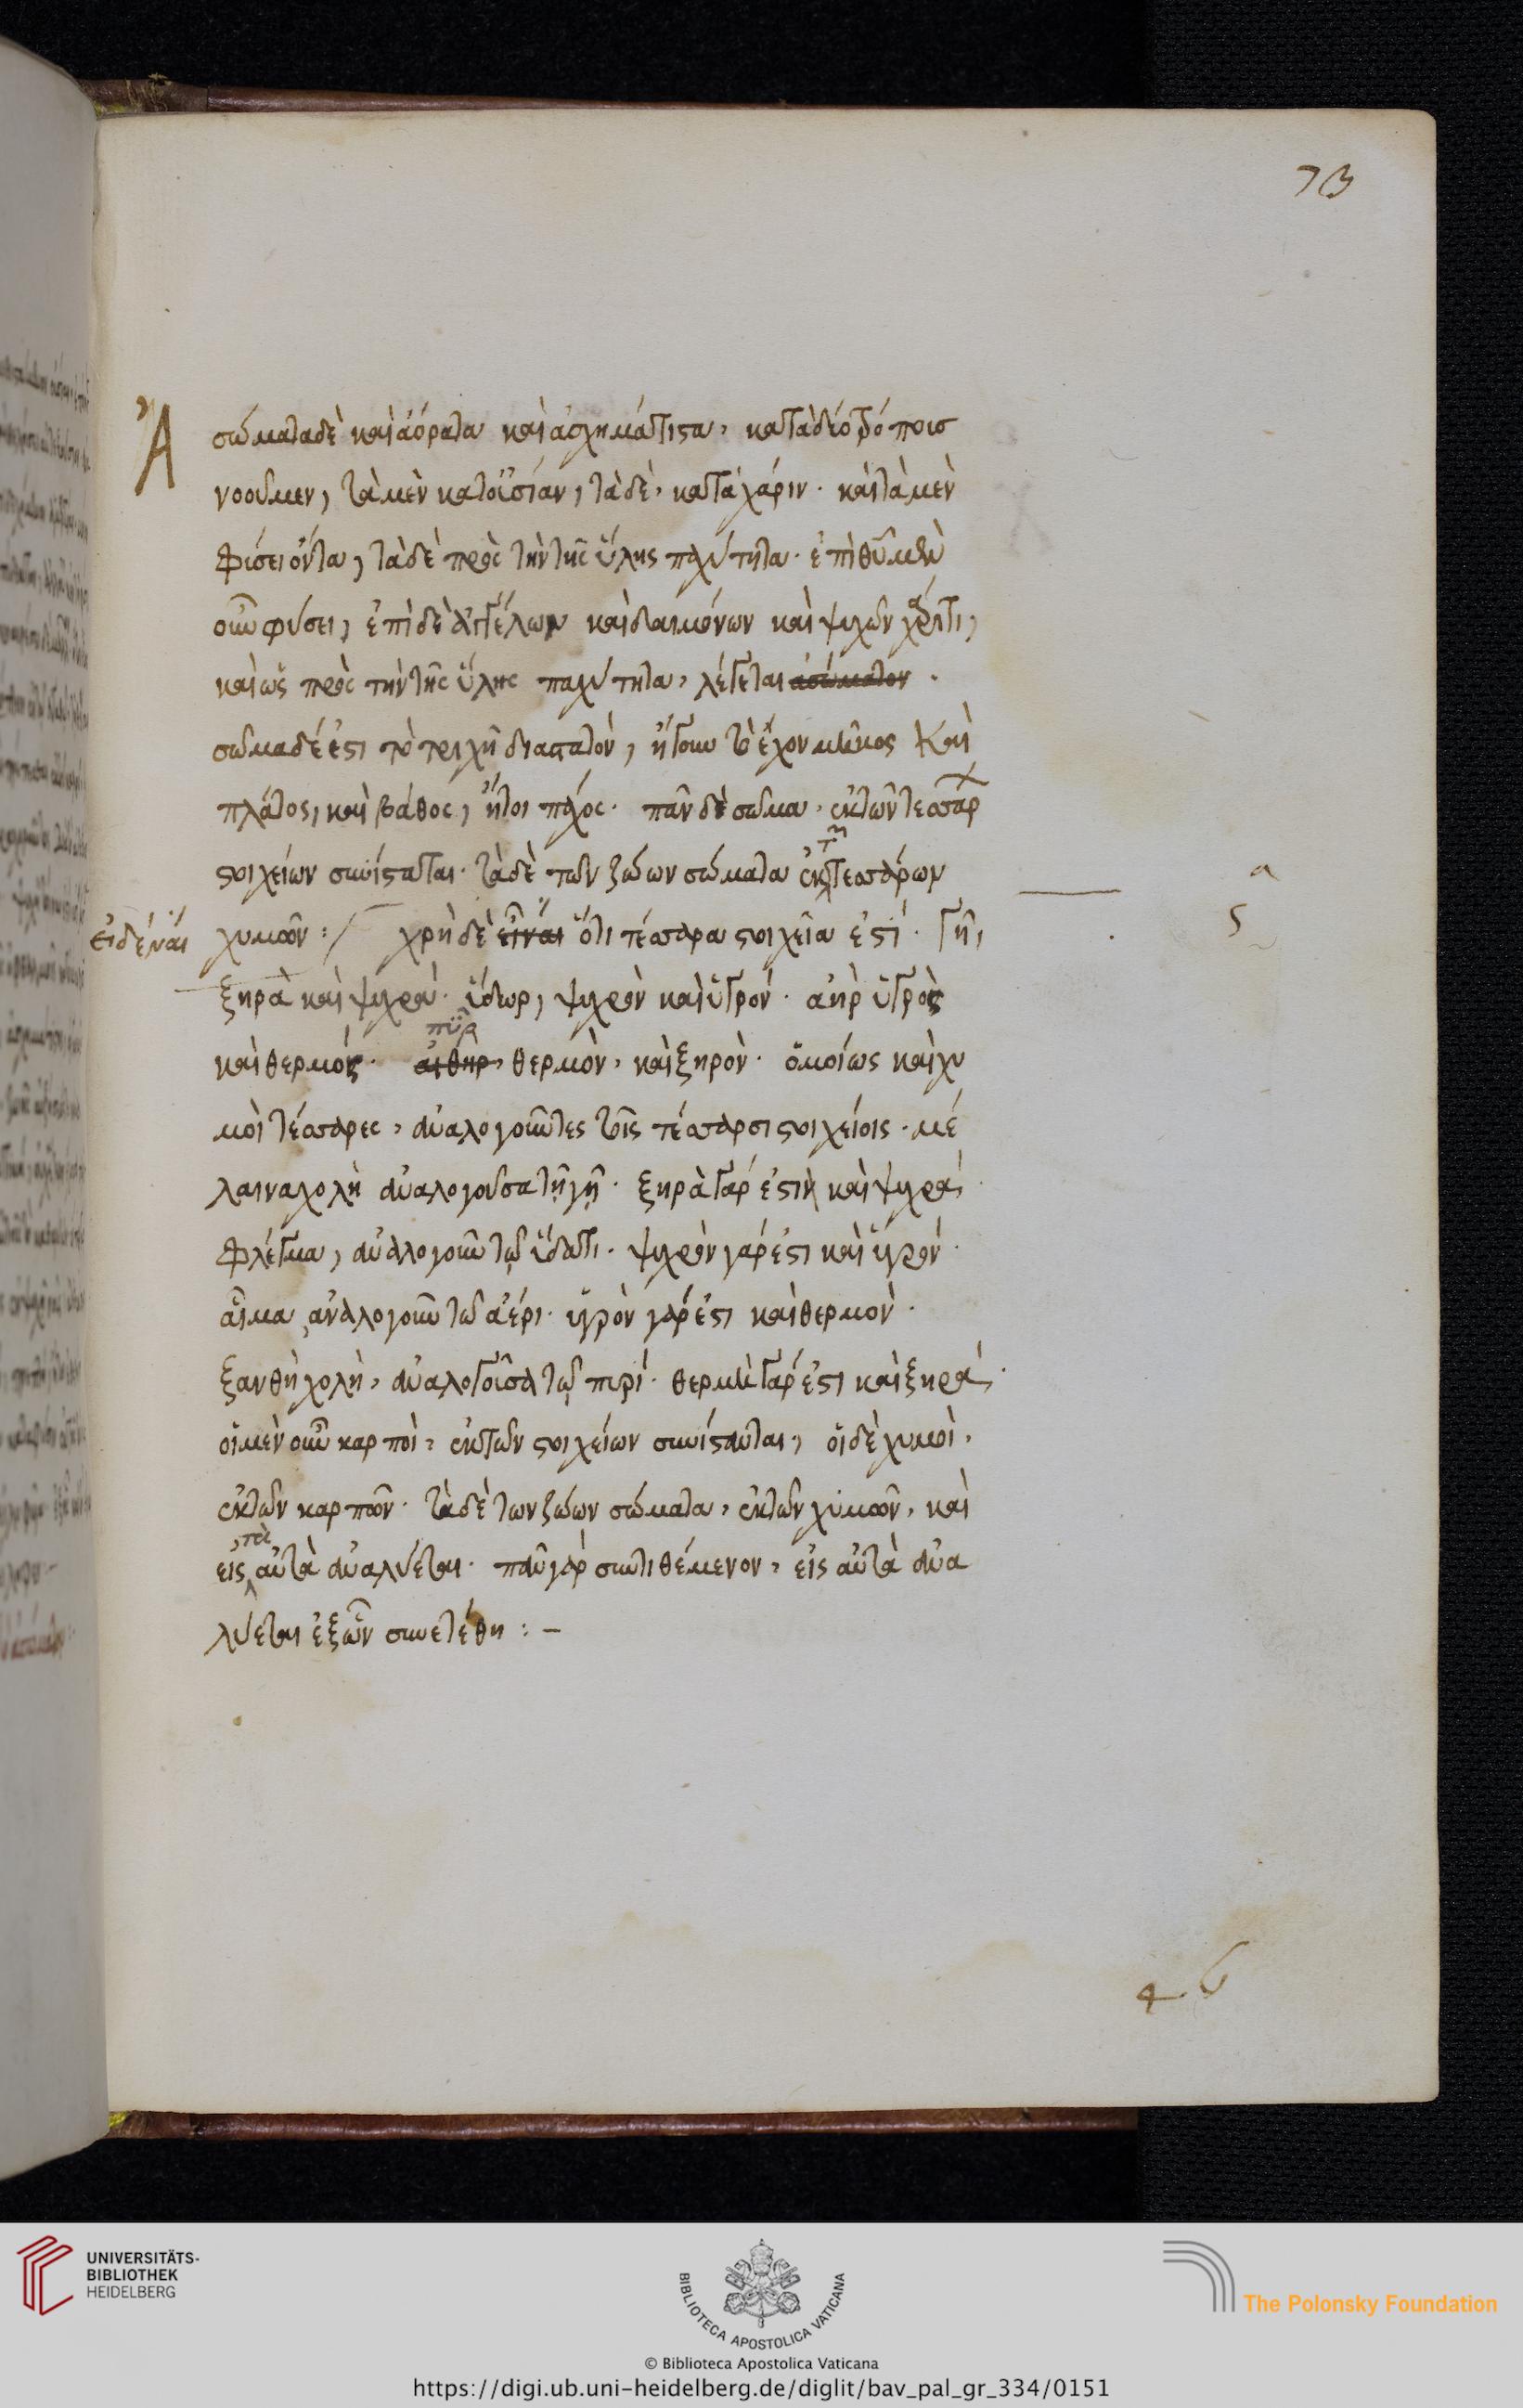 73
Ἀσώματα δὲ καὶ ἀόρατα καὶ ἀσχημάτιστα, κατὰ δύο τρόπους
νοοῦμεν, τὰ μὲν κατ' οὐσίαν, τὰ δὲ, κατὰ χάριν. καὶ τὰ μὲν
φύσει ὄντα, τὰ δὲ πρὸς τὴν τῆς ὕλης παχύτητα. ἐπὶ θῦ μὲν
οὖν φύσει, ἐπὶ δὲ ἀγγέλων καὶ δαιμόνων καὶ ψυχῶν χάριτι,
καὶ ὡς πρὸς τὴν τῆς ὕλης παχύτητα, λέγεται ἀσώματον.
σῶμα δέ ἐστι τὸ τριχῆ διαστατὸν, ἤγουν τὸ ἔχον μῆκος καὶ
πλάτος, καὶ βάθος, ἤτοι πάχος. πᾶν δὲ σῶμα, ἐκ τῶν τεσσάρ
στοιχείων συνίσταται. τὰ δὲ τῶν ζώων σώματα ἐκ τῶν τεσσάρων
χυμῶν: χρὴ δὲ εἶναι ὅτι τέσσαρα στοιχεῖα ἐστί. γῆ,
εἰδέναι
ξηρὰ καὶ ψυχρά. ὕδωρ, ψυχρὸν καὶ ὑγρόν. ἀὴρ ὑγρὸς
πῦρ
καὶ θερμός. αἰθὴρ, θερμὸν, καὶ ξηρὸν. ὁμοίως καὶ χυ
μοὶ τέσσαρες, ἀναλογοῦντες τοῖς τέσσαρσι στοιχείοις. μέ
λαινα χολὴ ἀναλογοῦσα τῇ γῇ. ξηρὰ γάρ ἐστι καὶ ψυχρά.
φλέγμα, ἀναλογοῦν τῷ ὕδατι. ψυχρὸν γάρ ἐστι καὶ ὑγρόν.
αἷμα, ἀναλογοῦν τῷ ἀέρι. ὑγρὸν γάρ ἐστι καὶ θερμὸν.
ξανθὴ χολὴ, ἀναλογοῦσα τῷ πυρί. θερμὴ γάρ ἐστι καὶ ξηρά.
οἱ μὲν οὖν καρποὶ, ἐκ τῶν στοιχείων συνίστανται, οἱ δὲ χυμοὶ,
ἐκ τῶν καρπῶν. τὰ δὲ τῶν ζώων σώματα, ἐκ τῶν χυμῶν, καὶ
εἰς τὰ αὐτὰ ἀναλύεται. πᾶν γὰρ συντιθέμενον, εἰς αὐτὰ ἀνα
λύεται ἐξ ὧν συνετέθη: –
UNIVERSITÄTS-
BIBLIOTHEK
HEIDELBERG
BIBLIOTECA APOSTOLICA VATICANA
The Polonsky Foundation
© Biblioteca Apostolica Vaticana
https://digi.ub.uni-heidelberg.de/diglit/bav_pal_gr_334/0151